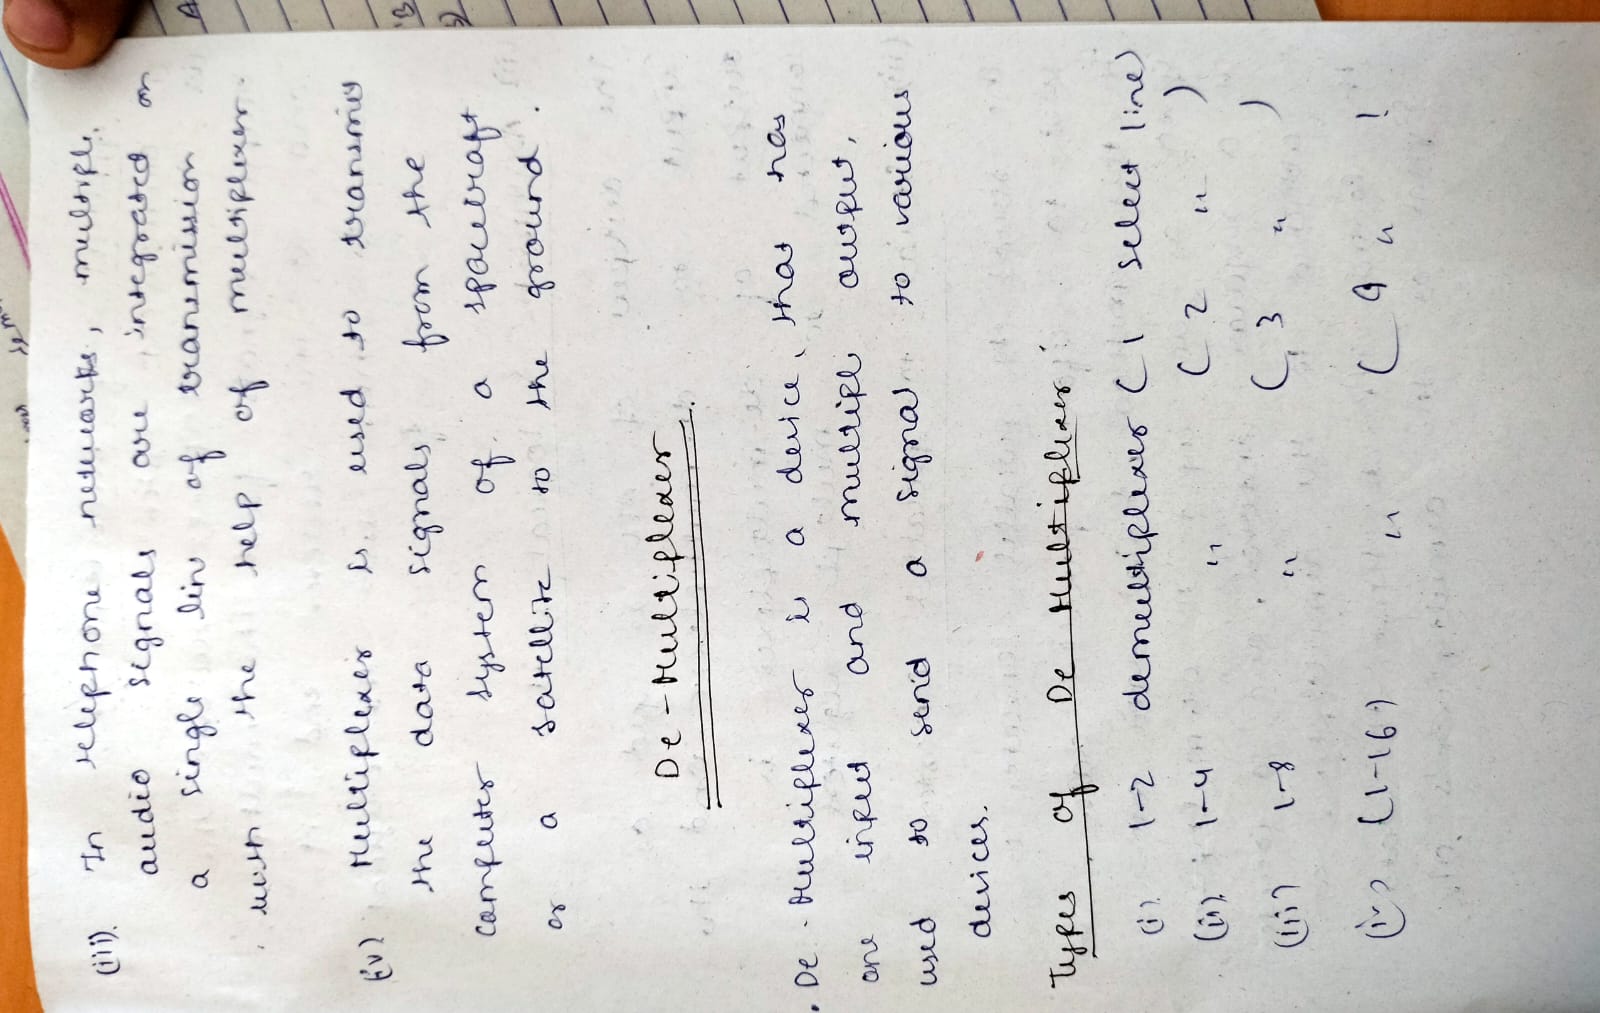 (iii). In telephone networks, multiple
audio signals are integrated on
a single line of transmission
with the help of multiplexer.
(iv) Multiplexer is used to transmit
the data signals from the
computer system of a spacecraft
or a satellite to the ground.
De-Multiplexer
De-Multiplexer is a device, that has
one input and multiple output,
used to send a signal to various
devices.
Types of De Multiplexer:
(i) 1-2 demultiplexer (1 select line)
(ii). 1-4 " (2 " )
(iii) 1-8 " (3 " )
(iv) (1-16) " (4 " )